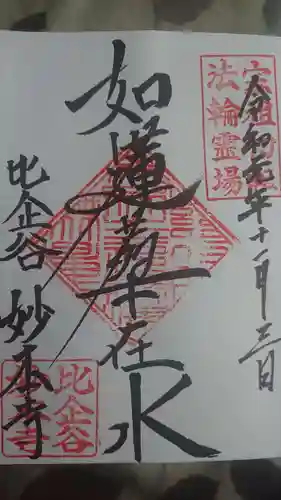 令和元年十一月三日
如蓮華在水
比企谷 妙本寺
法輪霊場
比企谷